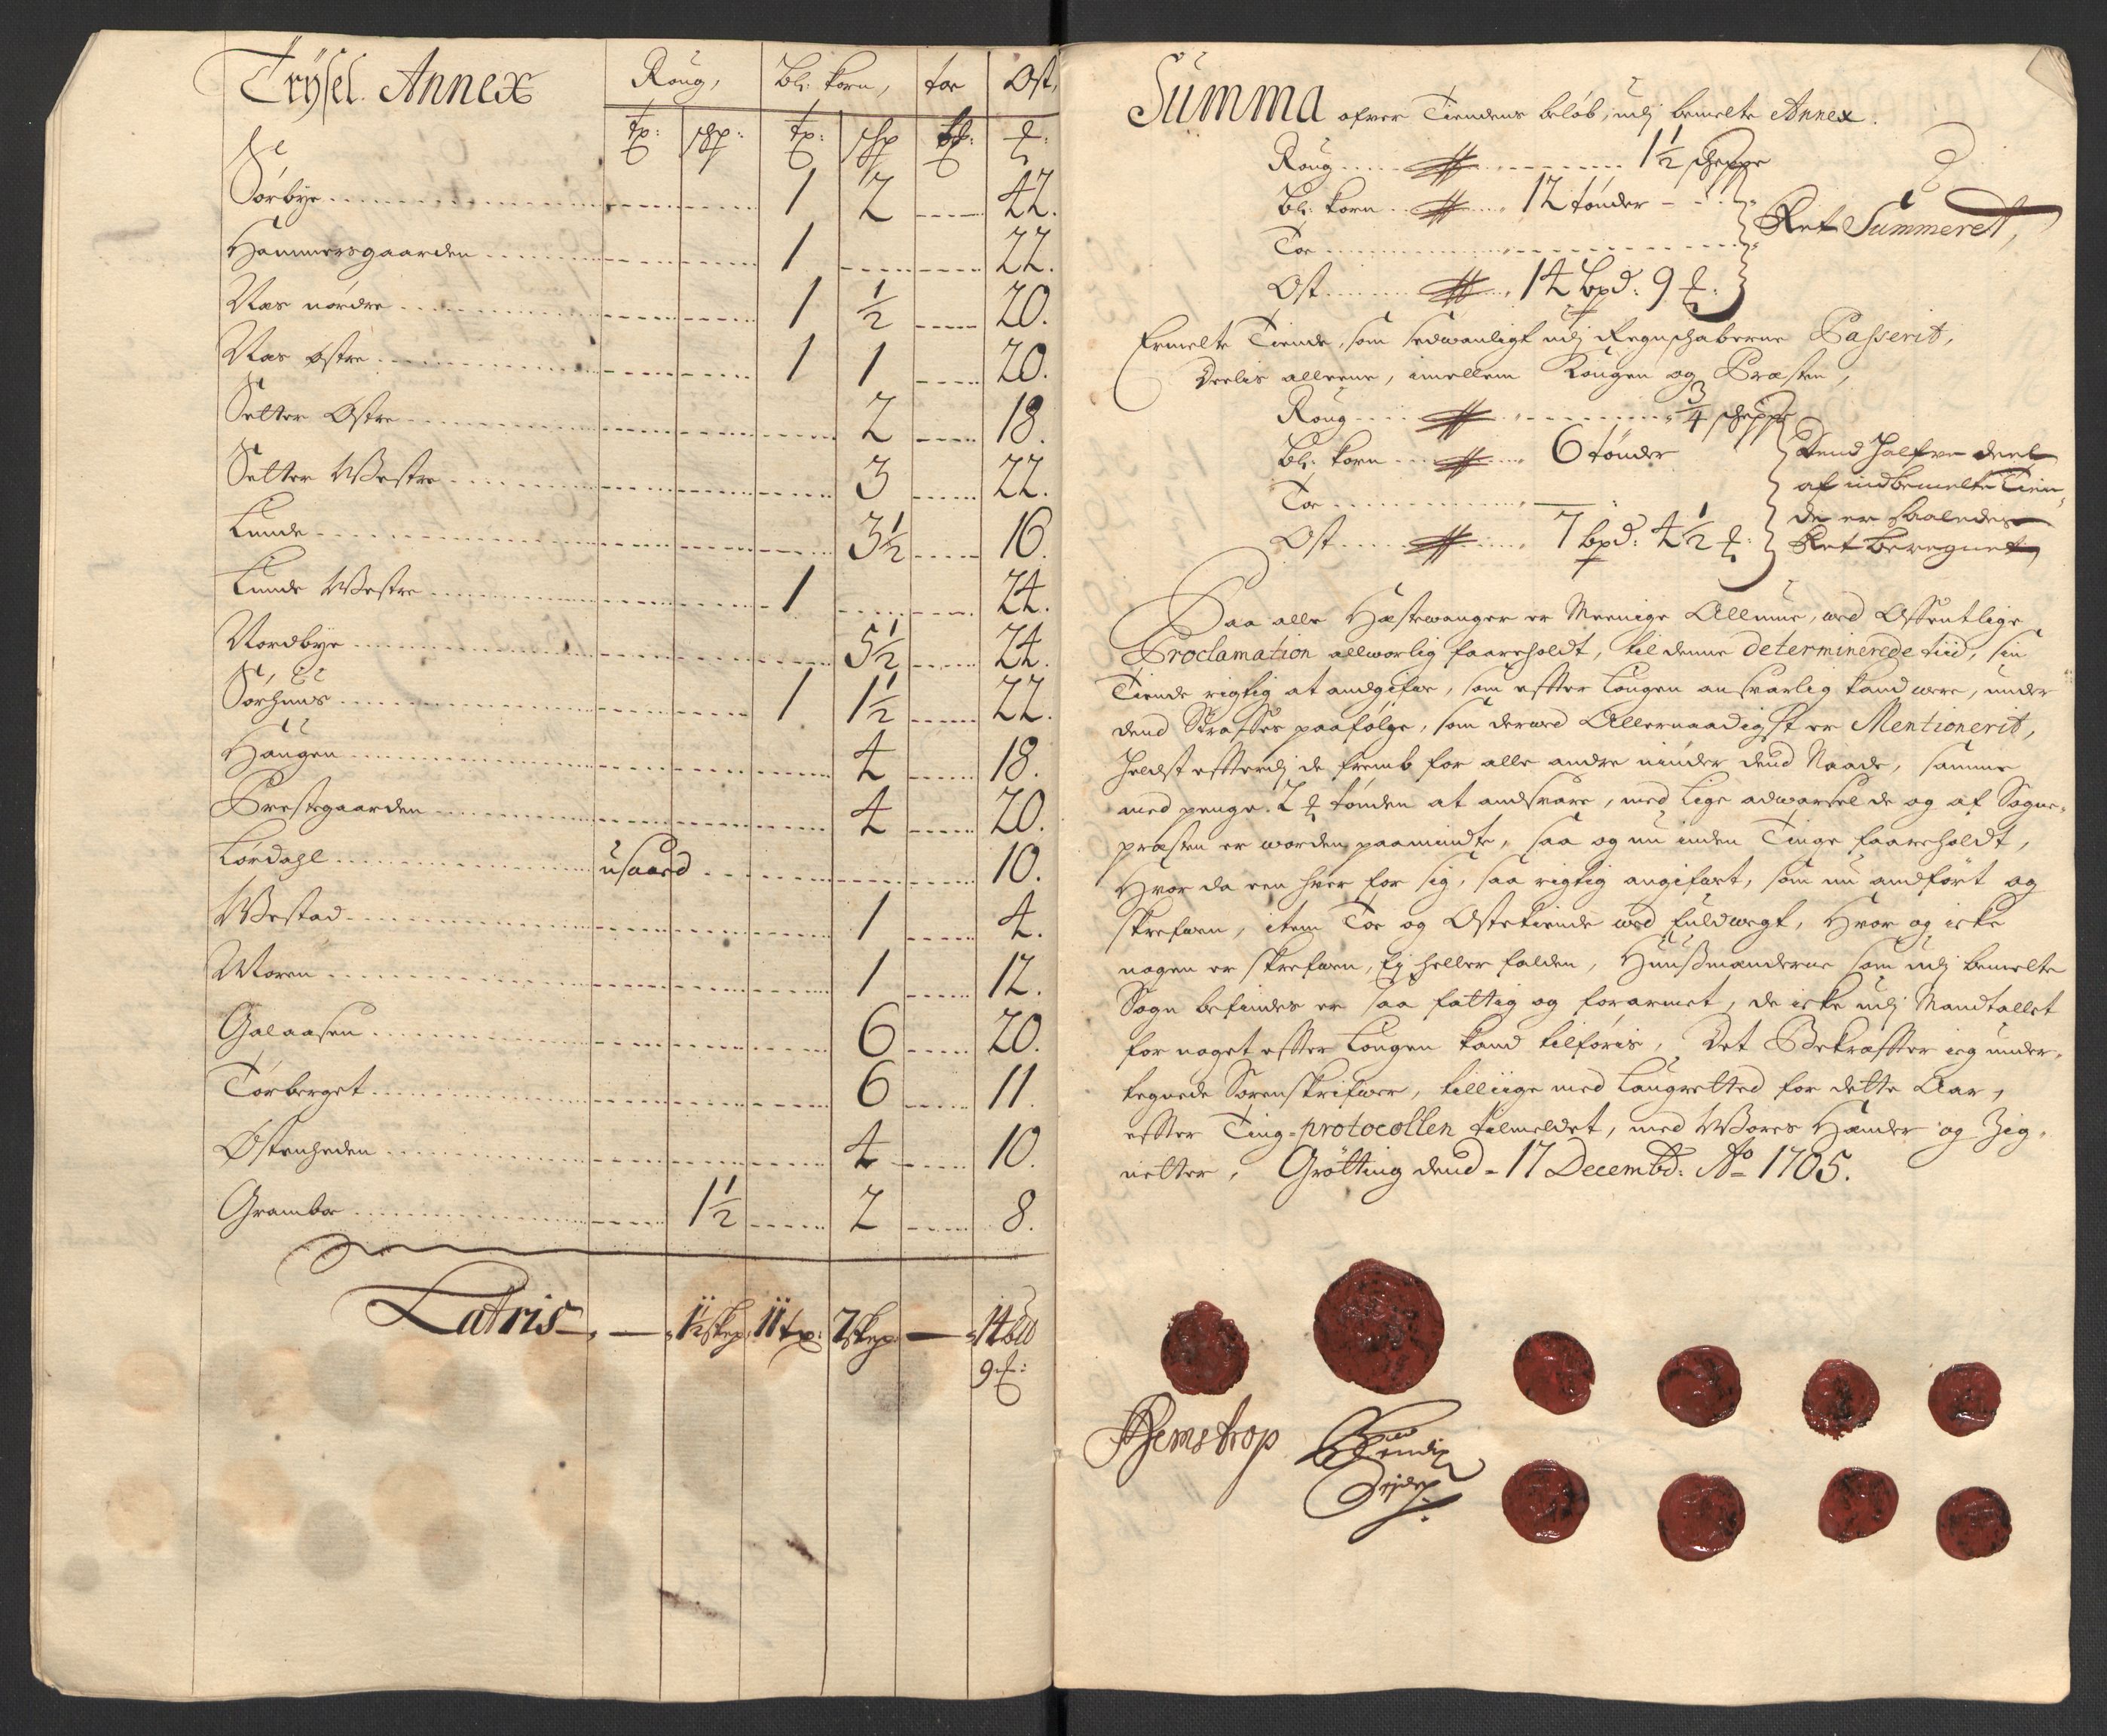 Trysel Annex
Roug, bl: korn, toe Ost,
tr: schp: tr: schp ℔:
Sørbye 1 2 42.
Hammersgaarden 1 22.
Næs nørdre 1 ½ 20.
Næs østre 1 1 20.
Setter Østre 2 18.
Setter Westre 3 22.
Lunde 3½ 16.
Lunde Westre 1 24.
Nordbye 5½ 24.
Sørhuus 1 1½ 22.
Haugen 4 18.
Prestegaarden 4 20.
Lørdahl usaaed 10.
Westad 1 4.
Moren 1 12.
Galaasen 6 20.
Tørberget 6 11.
Østenheden 4 10.
Grambæ 1½ 2 8.
Latris 1½ skep: 11 tr: 7 skep 14 bd
9 ℔:
Summa ofver Tiendens beløb, udj bemelte Annex.
Roug 1½ scheppe
Bl: korn 12 tønder
Toe
Ost 14 bpd: 9 ℔:
Ret Summeret,
Ermelte Tiende, som sedwanligt udj Regnschaberne Passerit,
Deelis alleene, imellem Kongen og Præsten,
Roug ¾ scheppe
Bl: korn 6 tønder
Toe
Ost 7 bpd: 4½ ℔:
Dend halfve deel
af indbemelte Tien-
de er saaledes
Ret beregnet
Paa alle Høstewanger er Meenige Allmue, wed Offentlige
Proclamation allworlig foareholdt, til denne determinerede tiid, sin
Tiende rigtig at andgifve, som effter Lougen answarlig kand were, under
dend Straffes paafølge, som derwed Allernaadigst er Mentionerit,
helst efftersom de fremb for alle andre niuder dend Naade, samme
med penge 2 tønden at andsvare, med lige adwarsel de og af Sogne-
præsten er worden paamindte, saa og nu inden Tinge foareholdt,
Hvor da een hver for sig, saa rigtig angifvet, som nu andført og
skrefwen, item Toe og Ostetiende wed fuldwegt, Hvor og icke
nogen er skrefwen, Ej heller falden, Huußmænderne som udj bemelte
Sogn befindes er saa fattig og forarmet, de icke udj Mandtallet
for noget effter Lougen kand tilføris, Det Bekræffter ieg under-
tegnede Sorenskrifwer, tilliige med Laugretted for dette Aar,
effter Ting-protocollen tilmeldet, med Wores Hænder og Zig-
netter, Grøtting dend 17 Decembd: Ao 1705.